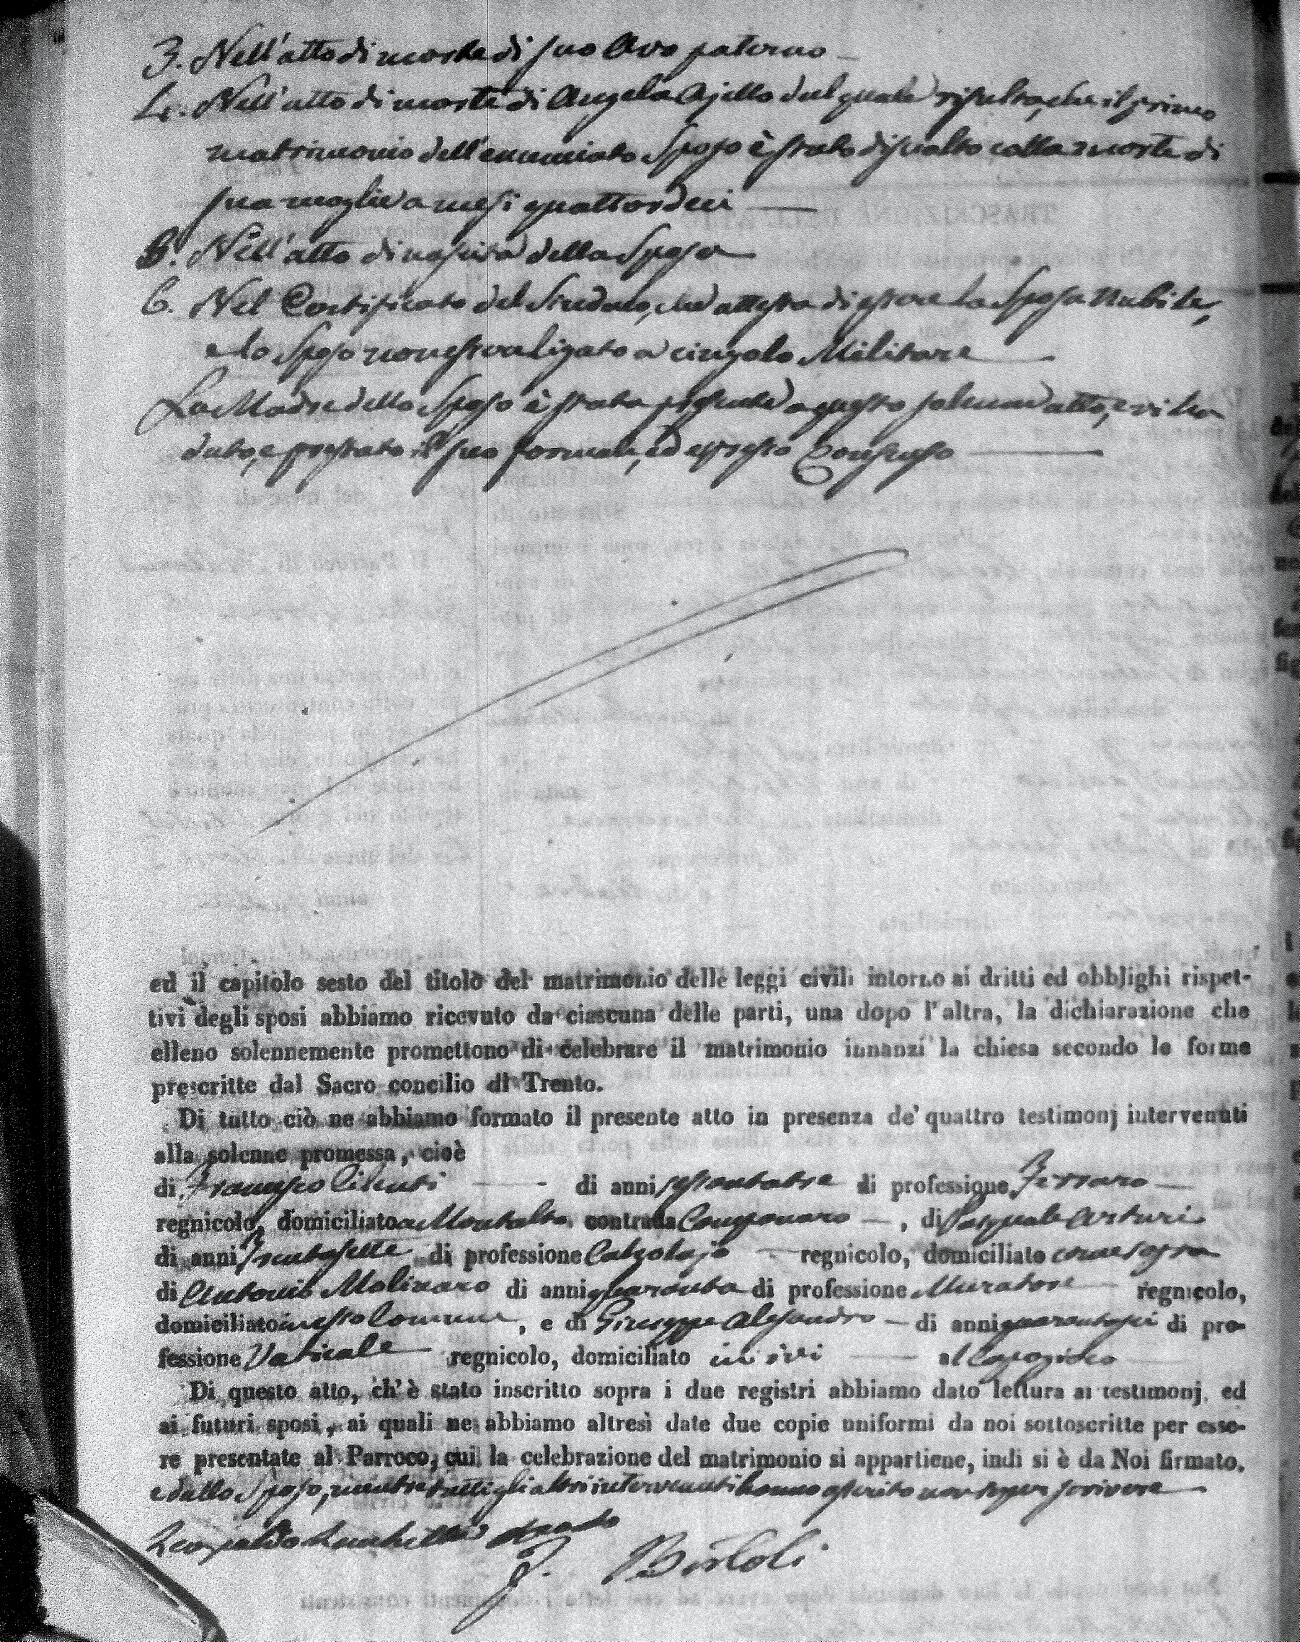 3. Nell'atto di morte di suo Avo paterno
4. Nell'atto di morte di Angela Ajello dal quale risulta, che il primo
matrimonio dell'enunciato Sposo è stato disciolto colla morte di
sua moglie a mesi quattordeci
5. Nell'atto di nascita della Sposa
6. Nel Certificato del Sindaco, che attesta di essere la Sposa Nubile,
e lo Sposo non esser ligato a cingolo Militare
La Madre dello Sposo è stata presente a questo solenne atto, e vi ha
dato, e prestato il suo formale, ed espresso Consenso
ed il capitolo sesto del titolo del matrimonio delle leggi civili intorno ai dritti ed obblighi rispet-
tivi degli sposi abbiamo ricevuto da ciascuna delle parti, una dopo l'altra, la dichiarazione che
elleno solennemente promettono di celebrare il matrimonio innanzi la chiesa secondo le forme
prescritte dal Sacro concilio di Trento.
Di tutto ciò ne abbiamo formato il presente atto in presenza de' quattro testimonj intervenuti
alla solenne promessa, cioè
di Francesco di anni sessantatre di professione Ferraro
regnicolo, domiciliato a Montalto contrada, di Pasquale Arturi
di anni Trentasette di professione Calzolajo regnicolo, domiciliato come sopra
di Antonio Molinaro di anni quaranta di professione Muratore regnicolo,
domiciliato in esso Comune, e di Giuseppe Alesandro di anni quarantasei di pro-
fessione Vaticale regnicolo, domiciliato in ivi al
Di questo atto, ch'è stato inscritto sopra i due registri abbiamo dato lettura ai testimonj, ed
ai futuri sposi, ai quali ne abbiamo altresì date due copie uniformi da noi sottoscritte per esse-
re presentate al Parroco, cui la celebrazione del matrimonio si appartiene, indi si è da Noi firmato,
e dallo Sposo, mentre tutti gli altri intervenuti hanno asserito non saper scrivere